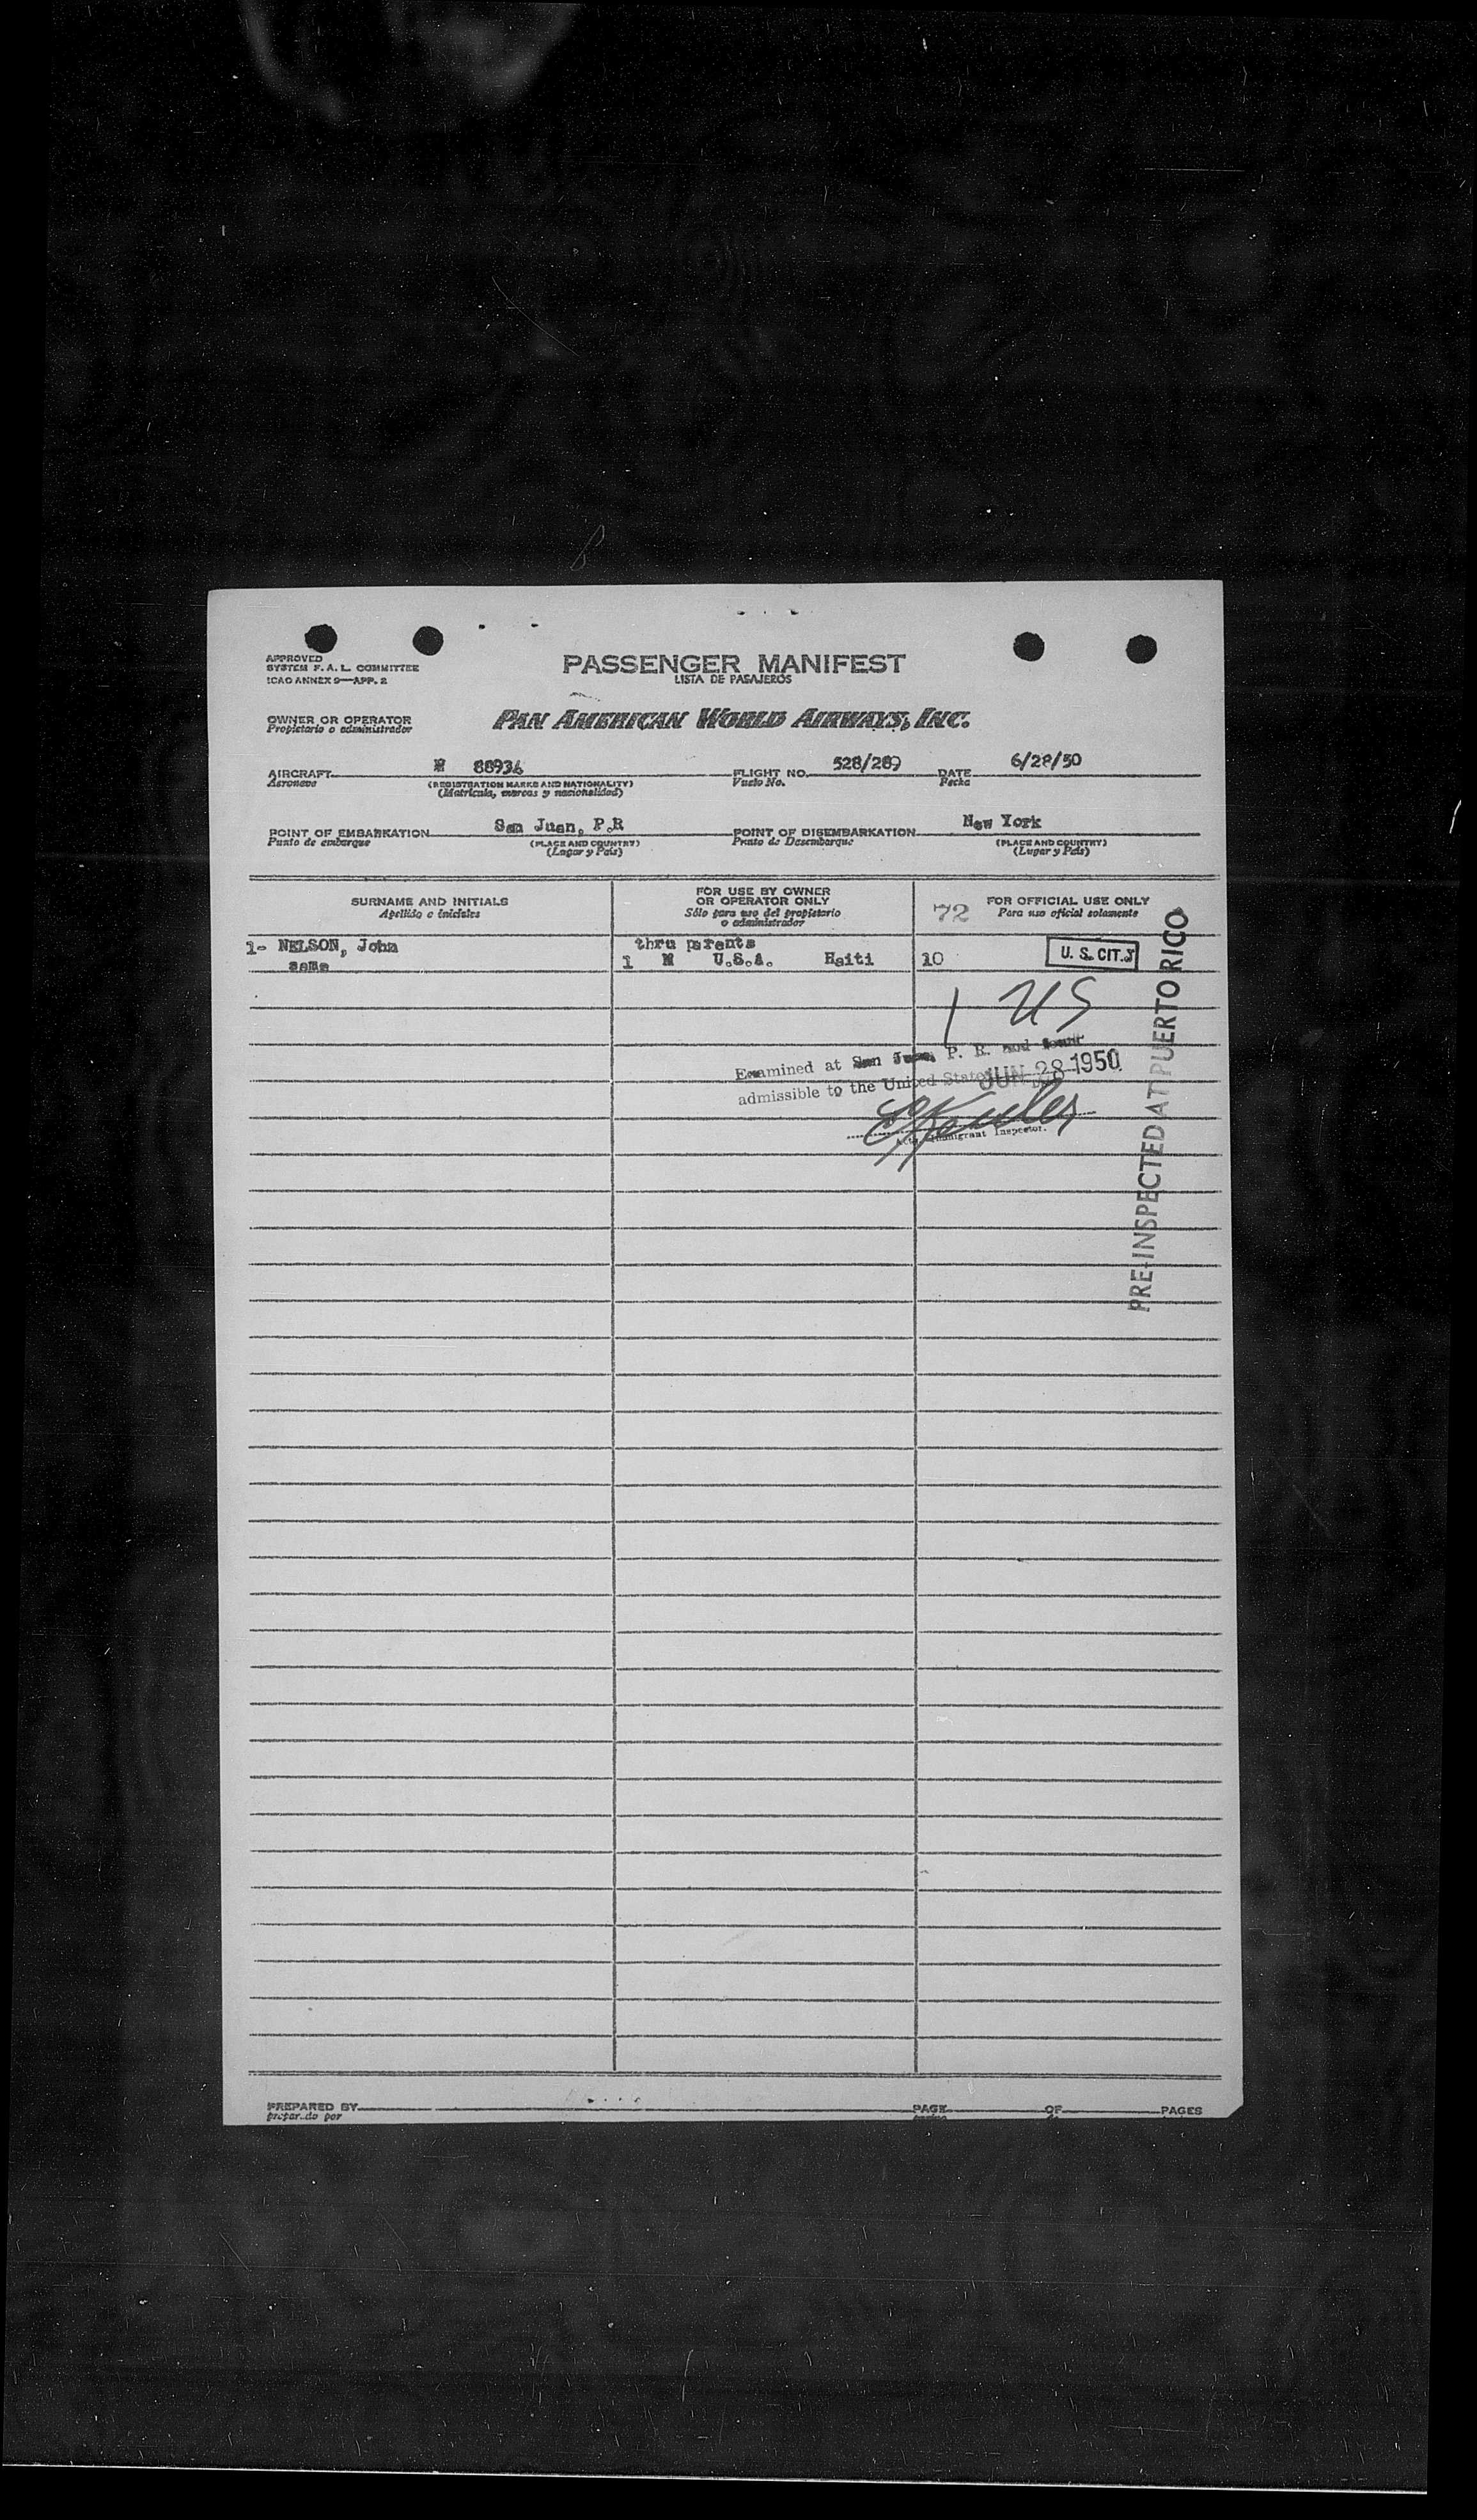 APPROVED
SYSTEM F. A. L. COMMITTEE
ICAO ANNEX 9—APP. 2
PASSENGER MANIFEST
LISTA DE PASAJEROS
OWNER OR OPERATOR
Propietario o administrador
PAN AMERICAN WORLD AIRWAYS, INC.
AIRCRAFT N 88936 FLIGHT NO. 528/289 DATE 6/28/50
Aeronave (REGISTRATION MARKS AND NATIONALITY) Vuelo No. Fecha
(Matrícula, marcas y nacionalidad)
POINT OF EMBARKATION San Juan, P.R POINT OF DISEMBARKATION New York
Punto de embarque (PLACE AND COUNTRY) Punto de Desembarque (PLACE AND COUNTRY)
(Lugar y País) (Lugar y País)
SURNAME AND INITIALS
Apellido e iniciales
FOR USE BY OWNER
OR OPERATOR ONLY
Sólo para uso del propietario
o administrador
72 FOR OFFICIAL USE ONLY
Para uso oficial solamente
1- NELSON, John thru parents
same 1 M U.S.A. Haiti 10 U. S. CIT.
1 US
Examined at San Juan, P. R. and found
admissible to the United States JUN 28 1950
Immigrant Inspector.
PRE-INSPECTED AT PUERTO RICO
PREPARED BY PAGE OF PAGES
preparado por